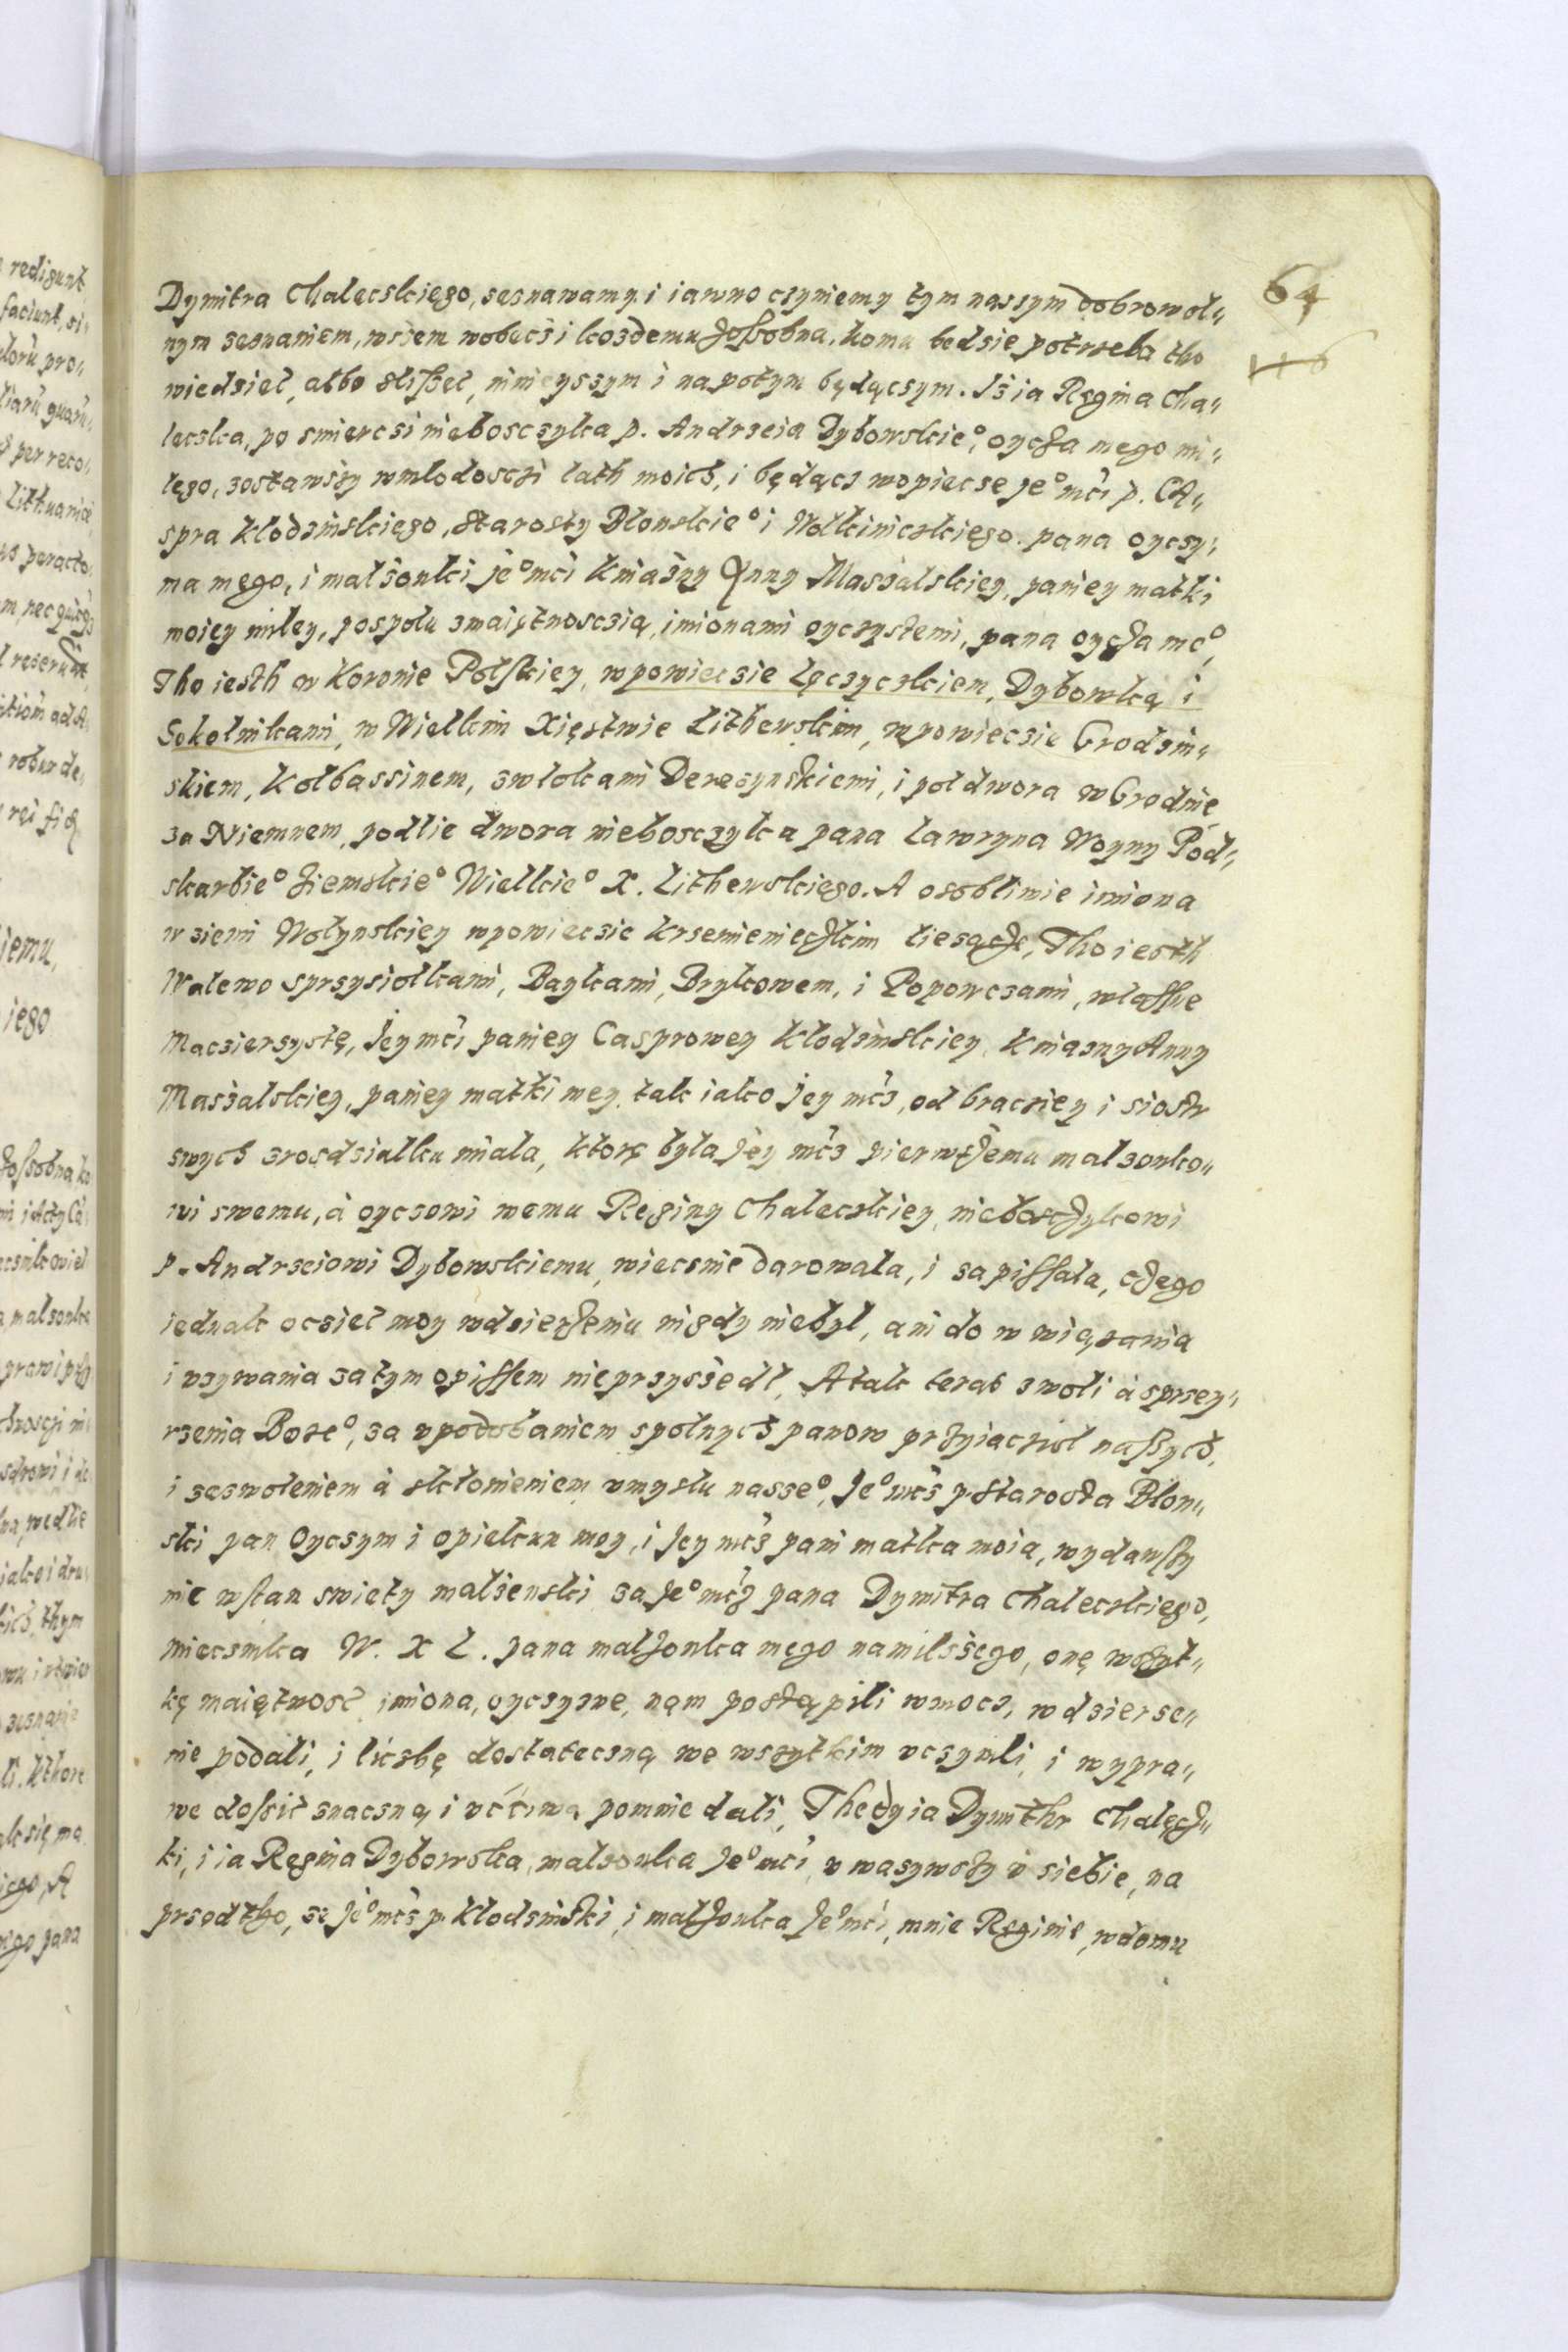 64
Dymitra Chalecskiego, sesnawamy i iawno czyniemy tym nassym dobrowol„
nym sesnaniem, wssem wobecs i kozdemu zosobna, komu bedsie potrzeba tho
wiedsiec, albo slißec, ninieyssym i napotym będącsym. Iż ia Regina Cha„
lecska, po smiercsi nieboscsyka p. Andrzeia Dybowskie°, oycza mego mi„
lego, zostawszy wmlodosczi lath moich, i będącz wopiecse Je° mći p. CA„
spra Klodzinskiego, Starosty Blonskie° i Wolkinicskiego. pana oycsy„
ma mego, i malżonki je° mći Kniażny Anny Massalskiey, paniey matki
moiey miley, pospolu zmaiętnosczią, imionami oyczystemi, pana oycza me°,
Tho iesth w Koronie Polskiey, wpowiecsie Lęczycskiem, Dybowką i
Sokolnikami, w Wielkim Xięstwie Lithewskim, wpowiecsie Grodzin„
skiem, Kolbassinem, zwlokami Deresynskiemi, i pol dwora w Grodnie
za Niemnem, podlie dwora nieboszczyka pana Lawryna Woyny Pod„
skarbie° ziemskie° Wielkie° X. Lithewskiego. A osobliwie imiona
w ziemi Wolynskiey wpowiecsie Krzemienieczkim liesącze, Tho iesth
Walewo sprzysiolkami, Baykami, Brykowem, i Popowczami, wlassne
Maczierzystę, Jey mći paniey Casprowey Klodzinskiey, Kniazny Anny
Massalskiey, paniey matki mey, tak iako Jey mćz, od braciey i siostr
swych zrosdsialku miala, ktorę byla Jey mćz pierwszemu malzonko„
wi swemu, à oyczowi memu Reginy Chalecskiey, nieboszczykowi
p. Andrzeiowi Dybowskiemu, wiecsnie darowala, i sapissala, czego
iednak ocsiec moy wdzierzeniu nigdy niebyl, ani do wwiązania
i vzywania zatym opissem nieprzyssedl, A tak teras zwoli à sprzey„
rzenia Boze°, za vpodobaniem spolnych panow przyiacziol naßych,
i seswoleniem à sklonieniem vmyslu nasse°, Je° mćs p. Starosta Blon„
ski pan Oycsym i opiekun moy, i Jey mćs pani matka moia, wydawszy
mie wstan swiety malżenski za Je° mćz pana Dymitra Chalecskiego,
miecsnika W. X L. pana malzonka mego namilssego, onę wszyt„
kę maiętnosc imiona, oyczyzne, nąm postąpili wmocz, wdzierse„
nie podali, i liczbę dostatecsną we wszytkim vczynili, i wypra„
we doßić snacsną i vććiwą pomnie dali, Thedy ia Dymithr Chalęcz„
ki, i ia Regina Dybowska, malzonka Je° mći, vwazywszy v siebie, na
przod tho, ze Je° mćs p. Klodsinski, i malzonka Je° mći, mnie Reginie, wdomu